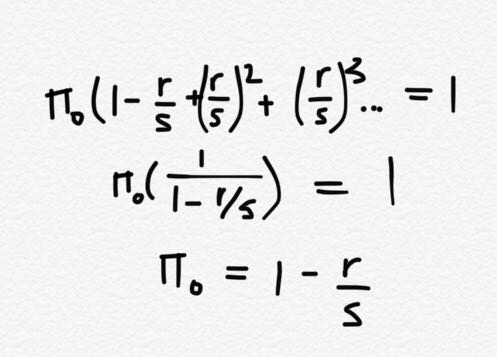 π₀(1 - r/s + (r/s)² + (r/s)³... = 1
π₀(1/(1 - r/s)) = 1
π₀ = 1 - r/s